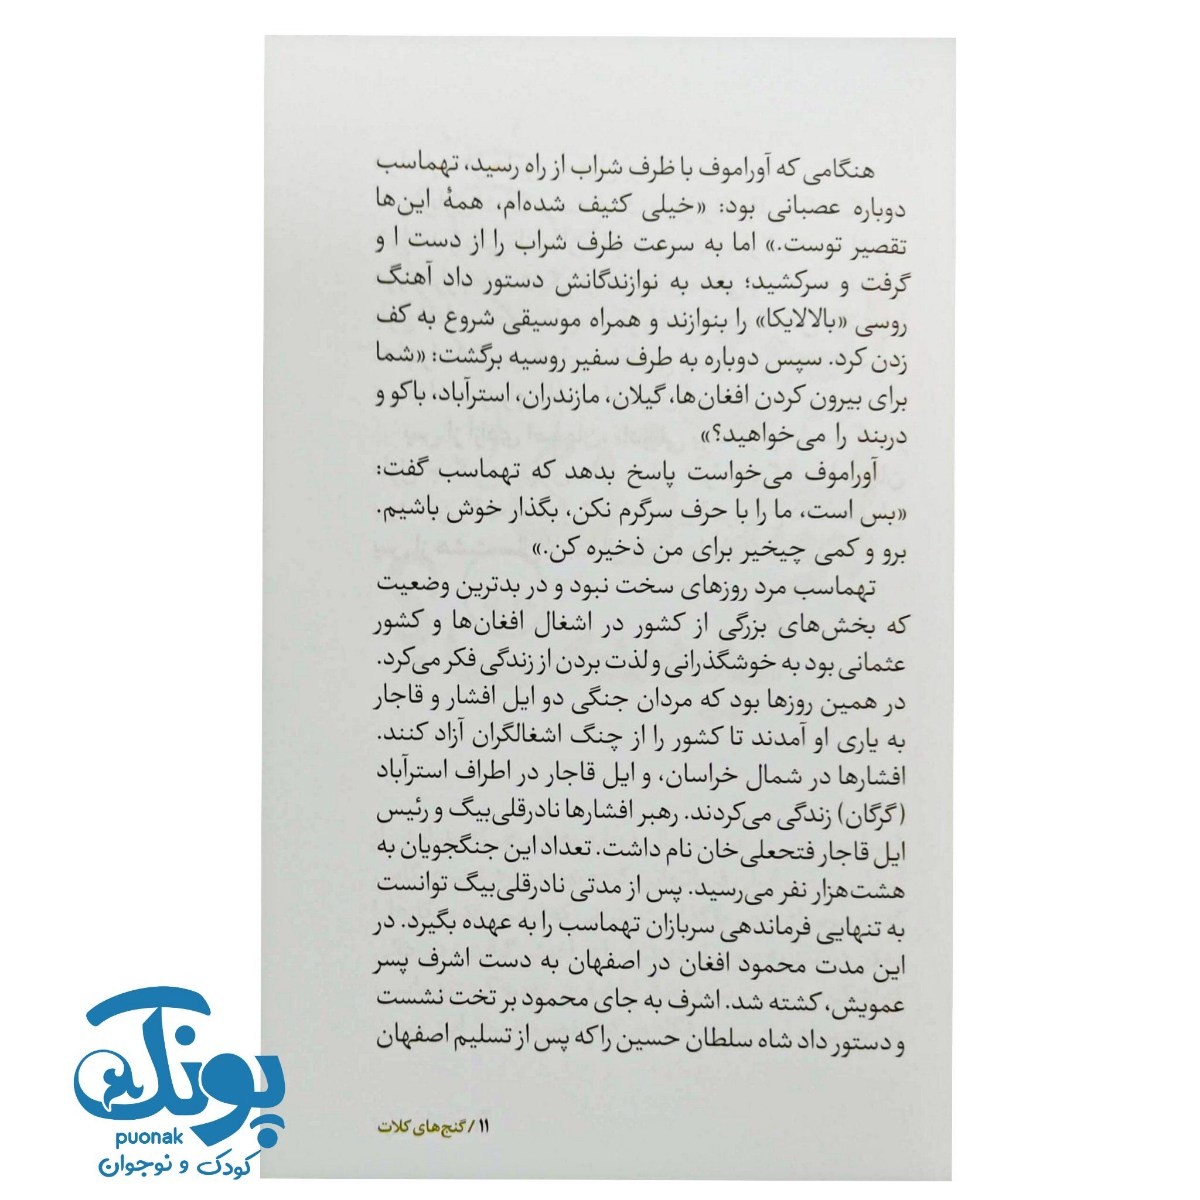 هنگامی که آوراموف با ظرف شراب از راه رسید، تهماسب
دوباره عصبانی بود: «خیلی کثیف شده‌ام، همهٔ این‌ها
تقصیر توست.» اما به سرعت ظرف شراب را از دست ا و
گرفت و سرکشید؛ بعد به نوازندگانش دستور داد آهنگ
روسی «بالالایکا» را بنوازند و همراه موسیقی شروع به کف
زدن کرد. سپس دوباره به طرف سفیر روسیه برگشت: «شما
برای بیرون کردن افغان‌ها، گیلان، مازندران، استرآباد، باکو و
دربند را می‌خواهید؟»
آوراموف می‌خواست پاسخ بدهد که تهماسب گفت:
«بس است، ما را با حرف سرگرم نکن، بگذار خوش باشیم.
برو و کمی چیخیر برای من ذخیره کن.»
تهماسب مرد روزهای سخت نبود و در بدترین وضعیت
که بخش‌های بزرگی از کشور در اشغال افغان‌ها و کشور
عثمانی بود به خوشگذرانی و لذت بردن از زندگی فکر می‌کرد.
در همین روزها بود که مردان جنگی دو ایل افشار و قاجار
به یاری او آمدند تا کشور را از چنگ اشغالگران آزاد کنند.
افشارها در شمال خراسان، و ایل قاجار در اطراف استرآباد
(گرگان) زندگی می‌کردند. رهبر افشارها نادرقلی‌بیگ و رئیس
ایل قاجار فتحعلی‌خان نام داشت. تعداد این جنگجویان به
هشت‌هزار نفر می‌رسید. پس از مدتی نادرقلی‌بیگ توانست
به تنهایی فرماندهی سربازان تهماسب را به عهده بگیرد. در
این مدت محمود افغان در اصفهان به دست اشرف پسر
عمویش، کشته شد. اشرف به جای محمود بر تخت نشست
و دستور داد شاه سلطان حسین را که پس از تسلیم اصفهان
۱۱ / گنج‌های کلات
پونک
puonak
کودک و نوجوان